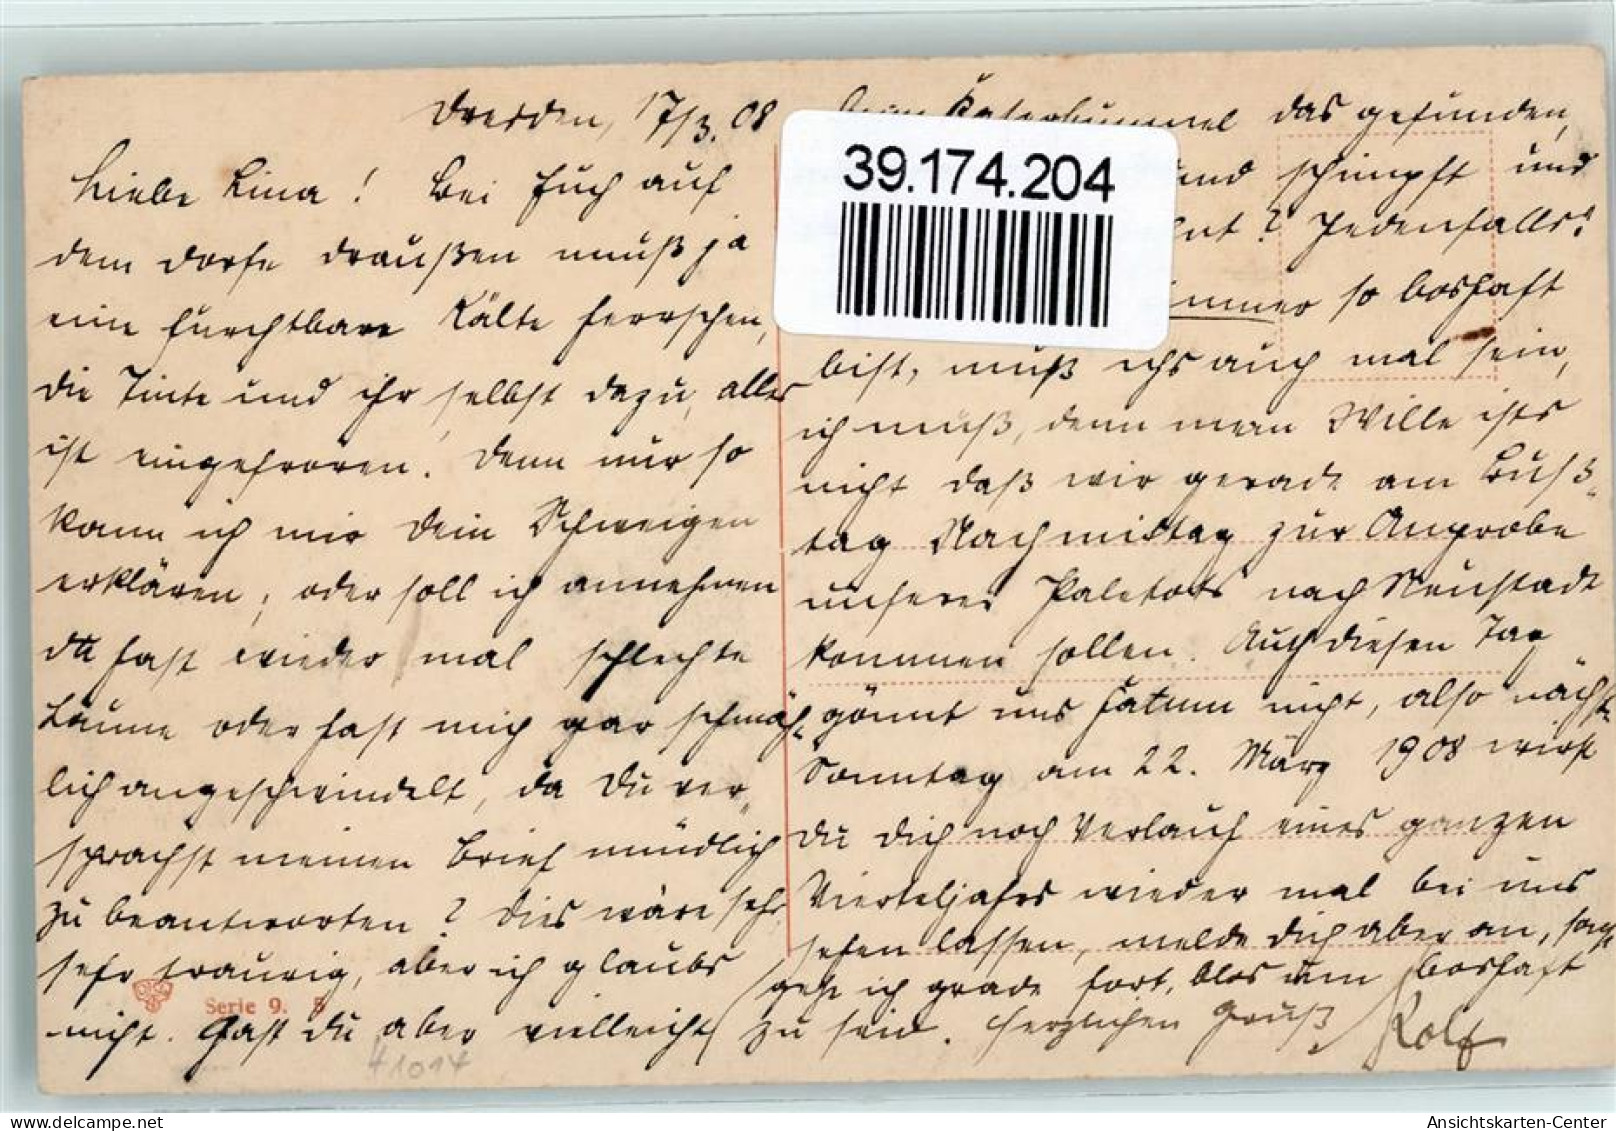 Dresden, 17/3. 08
Liebe Lina! Bei Euch auf
dem Dorfe draußen muß ja
eine furchtbare Kälte herrschen,
die Tinte und ihr selbst dazu, alles
ist eingefroren. Denn nur so
kann ich mir Dein Schweigen
erklären, oder soll ich annehmen
du hast wieder mal schlechte
Laune oder hast mich gar schmäh-
lich angeschwindelt, da Du ver-
sprachst meinen Brief mündlich
zu beantworten? Dies wäre sehr
sehr traurig, aber ich glaubs
nicht. Hast Du aber vielleicht
beim Katerbummel das gefunden,
und schimpft und
? Jedenfalls!
immer so boshaft
bist, muß ichs auch mal sein,
ich muß, denn mein Wille ists
nicht daß wir gerade am Buß-
tag Nachmittag zur Anprobe
unserer Paletots nach Neustadt
kommen sollen. Auch diesen Tag
gönnt uns Fatum nicht, also nächst-
Sonntag am 22. März 1908 wirst
Du Dich noch Verlauf eines ganzen
Vierteljahrs wieder mal bei uns
sehen lassen, melde Dich aber an, sonst
gehe ich grade fort, blos um boshaft
zu sein. Herzlichen Gruß Rolf
Serie 9. 5
41014
39.174.204
delcampe.net
Ansichtskarten-Center